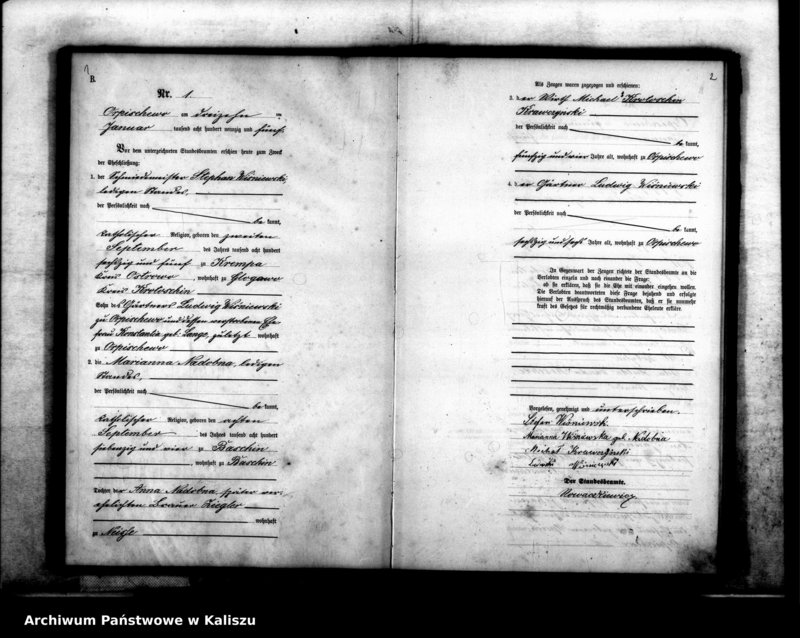 B.
Nr. 1.
Orpischewo am dreizehnten
Januar tausend acht hundert neunzig und fünf.
Vor dem unterzeichneten Standesbeamten erschien heute zum Zweck
der Eheschließung:
1. der Schmiedemeister Stephan Wiśniewski,
ledigen Standes,
der Persönlichkeit nach
be kannt,
katholischer Religion, geboren den zweiten
September des Jahres tausend acht hundert
sechszig und fünf zu Krempa
Kreis Ostrowo, wohnhaft zu Glogowo
Kreis Krotoschin
Sohn des Gärtners Ludwig Wiśniewski
zu Orpischewo und dessen verstorbenen Ehe
frau Konstantia geb. Lange, zuletzt wohnhaft
zu Orpischewo
2. die Marianna Nadobna, ledigen
Standes,
der Persönlichkeit nach
be kannt,
katholischer Religion, geboren den achten
September des Jahres tausend acht hundert
siebenzig und vier zu Baschin
, wohnhaft zu Baschin
Tochter der Anna Nadobna später ver-
ehelichten Brauer Ziegler
wohnhaft
zu Neiße
2
Als Zeugen waren zugezogen und erschienen:
3. der Wirth Michael Krotoschin
Krawczyński
der Persönlichkeit nach
be kannt,
fünfzig und vier Jahre alt, wohnhaft zu Orpischewo
4. der Gärtner Ludwig Wiśniewski
der Persönlichkeit nach
be kannt,
sechszig und sechs Jahre alt, wohnhaft zu Orpischewo
In Gegenwart der Zeugen richtete der Standesbeamte an die
Verlobten einzeln und nach einander die Frage:
ob sie erklären, daß sie die Ehe mit einander eingehen wollen.
Die Verlobten beantworteten diese Frage bejahend und erfolgte
hierauf der Ausspruch des Standesbeamten, daß er sie nunmehr
kraft des Gesetzes für rechtmäßig verbundene Eheleute erkläre.
Vorgelesen, genehmigt und unterschrieben.
Stefan Wiśniewski
Marianna Wiśniewska geb. Nadobna
Michał Krawczyński
Wiśniewski
Der Standesbeamte.
Nowackiewicz
Archiwum Państwowe w Kaliszu